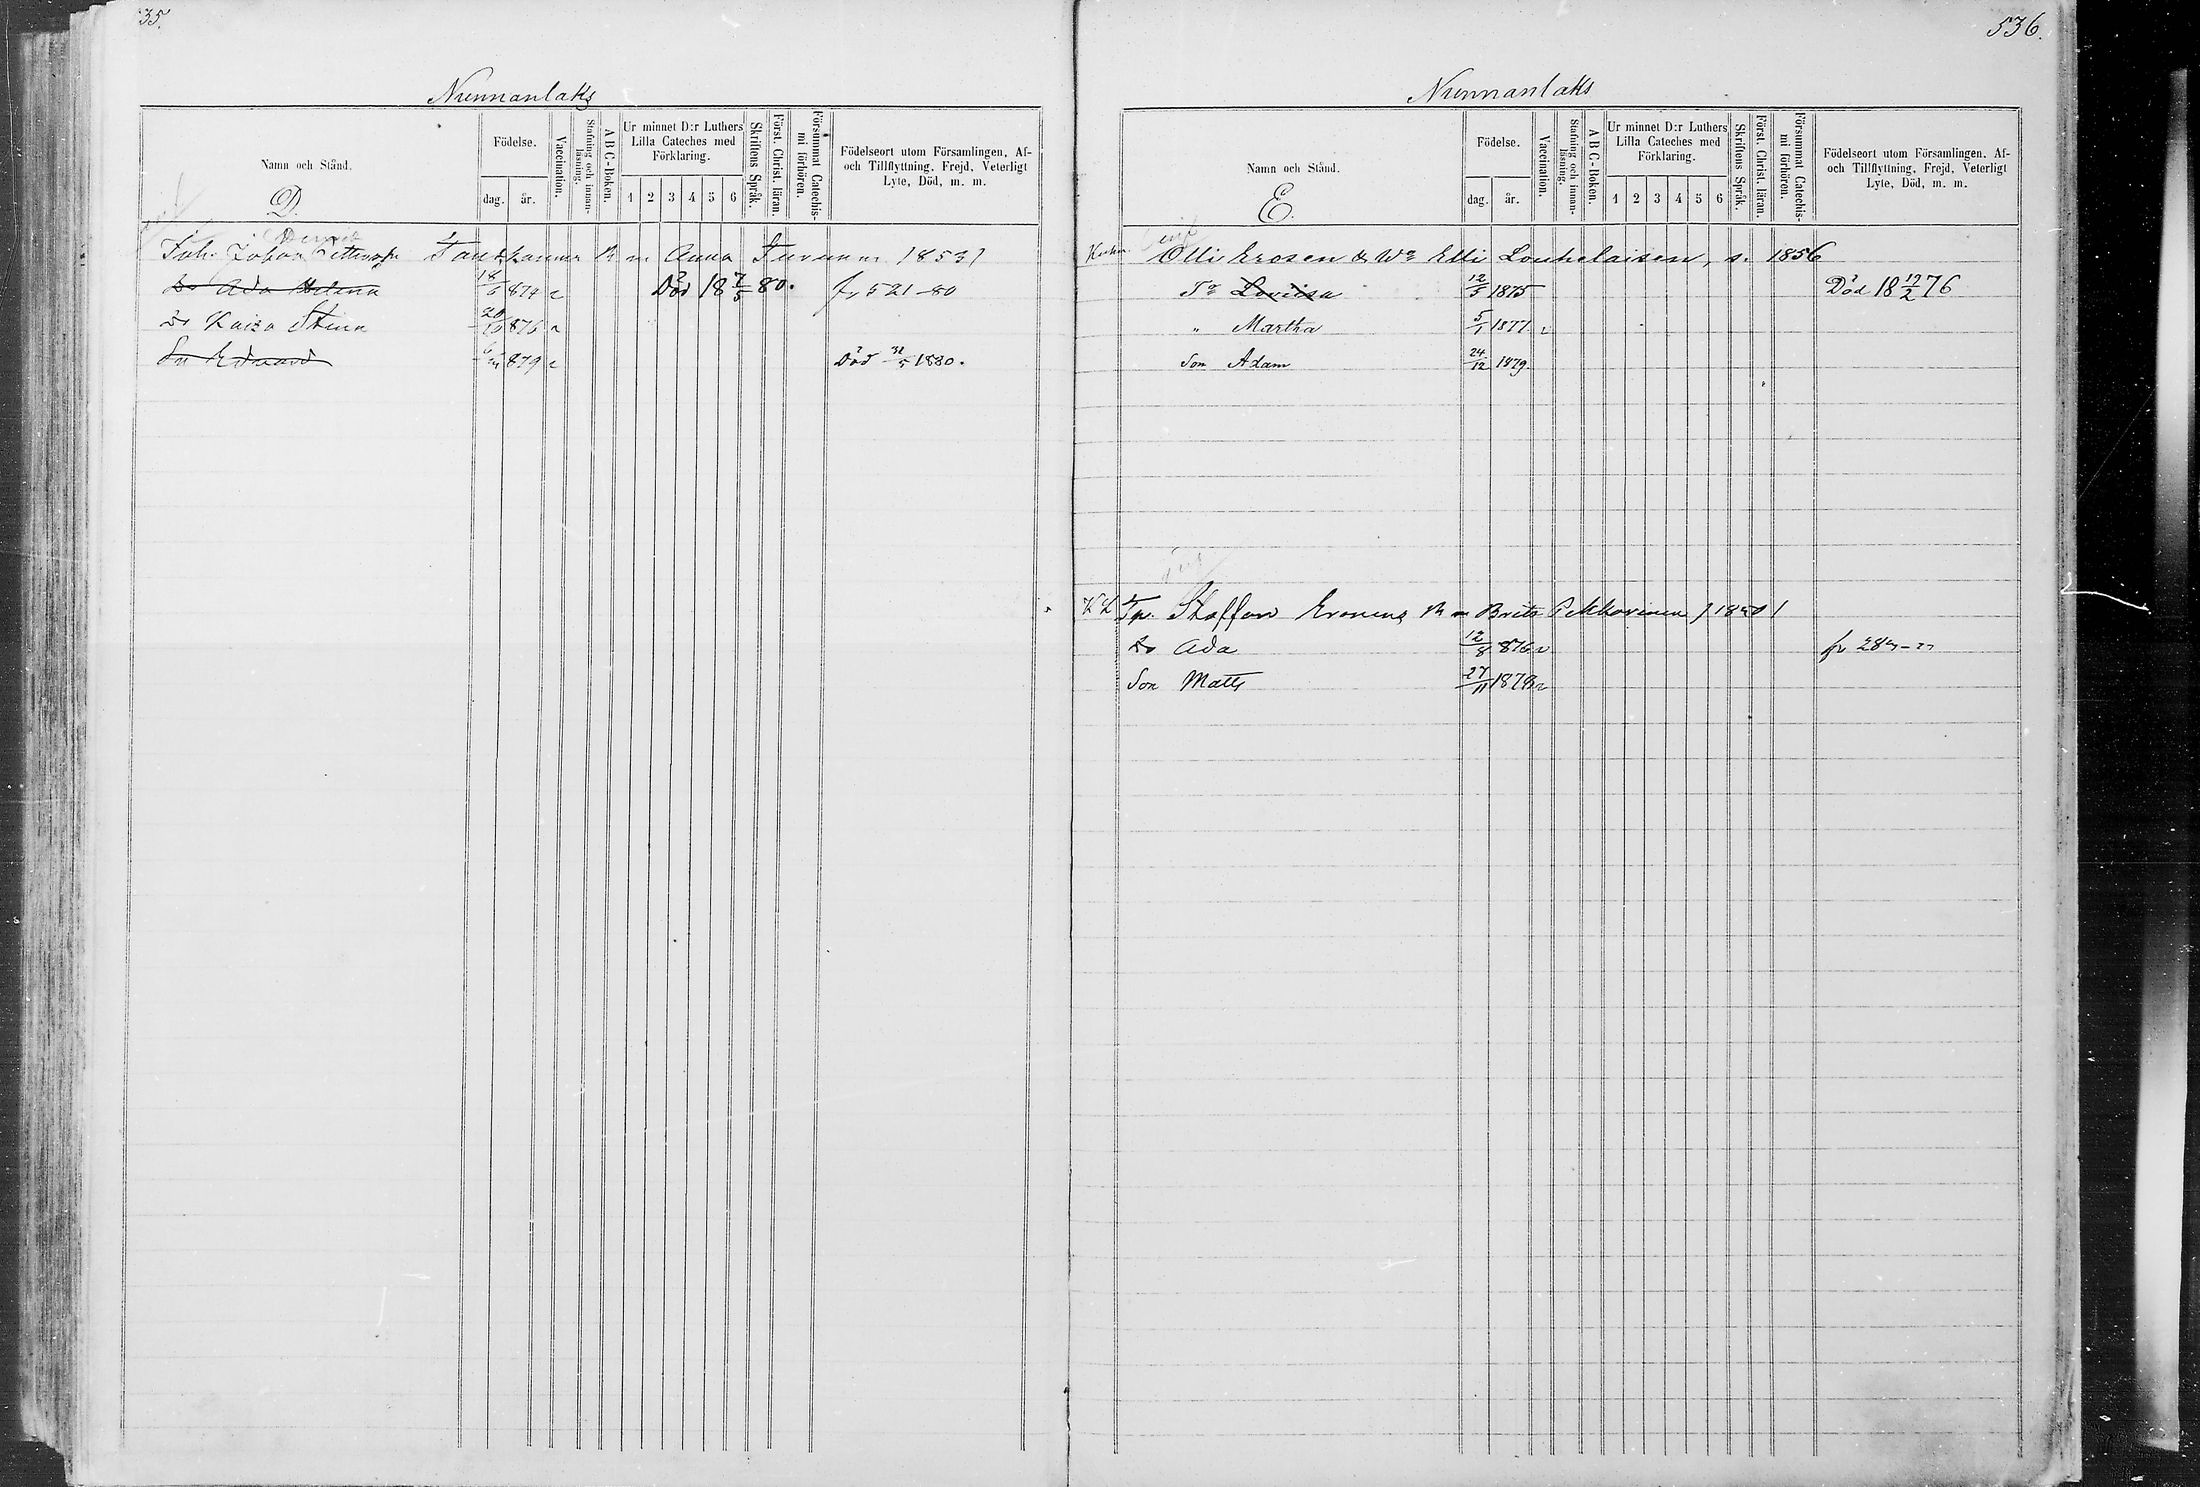 35.
Nunnanlaks
Namn och Stånd.
D.
Födelse.
dag.
år.
Vaccination.
Stafning och innanläsning.
ABC-Boken.
Ur minnet D:r Luthers Lilla Cateches med Förklaring.
1 2 3 4 5 6
Skriftens Språk.
Först. Christ. läran.
Försummat Catechismi förhören.
Födelseort utom Församlingen, Af- och Tillflyttning, Frejd, Veterligt Lyte, Död, m. m.
Johan m Anna Turunen 1853
Do Ada Helena 18/6 874 Död 18 7/5 80. fr 521-80
Do Kaisa Stina 20/10 876
Son Edvard 879 Död 31/5 1880.
536.
Nunnanlaks
Namn och Stånd.
E.
Födelse.
dag.
år.
Vaccination.
Stafning och innanläsning.
ABC-Boken.
Ur minnet D:r Luthers Lilla Cateches med Förklaring.
1 2 3 4 5 6
Skriftens Språk.
Först. Christ. läran.
Försummat Catechismi förhören.
Födelseort utom Församlingen, Af- och Tillflyttning, Frejd, Veterligt Lyte, Död, m. m.
Olli Erosen & Elli Louhelaisen, s. 1856
Lovisa 12/5 1875 Död 18 19/2 76
" Martha 5/1 1877
Son Adam 24/12 1879.
Staffan Eronens m Brita
Do Ada 12/8 876
Son Matts 27/11 1879